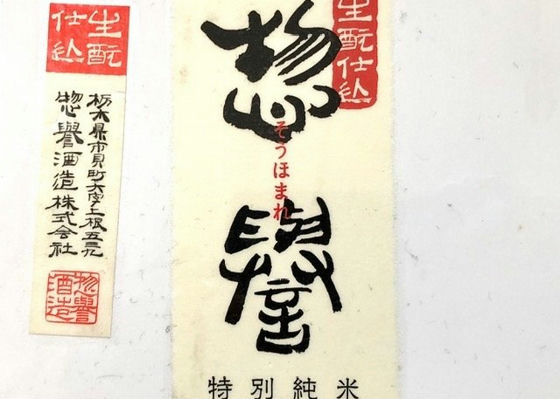 生酛
仕込
栃木県市貝町大字上根五三九
惣譽酒造株式会社
惣譽
酒造
生酛仕込
惣譽
そうほまれ
特別純米